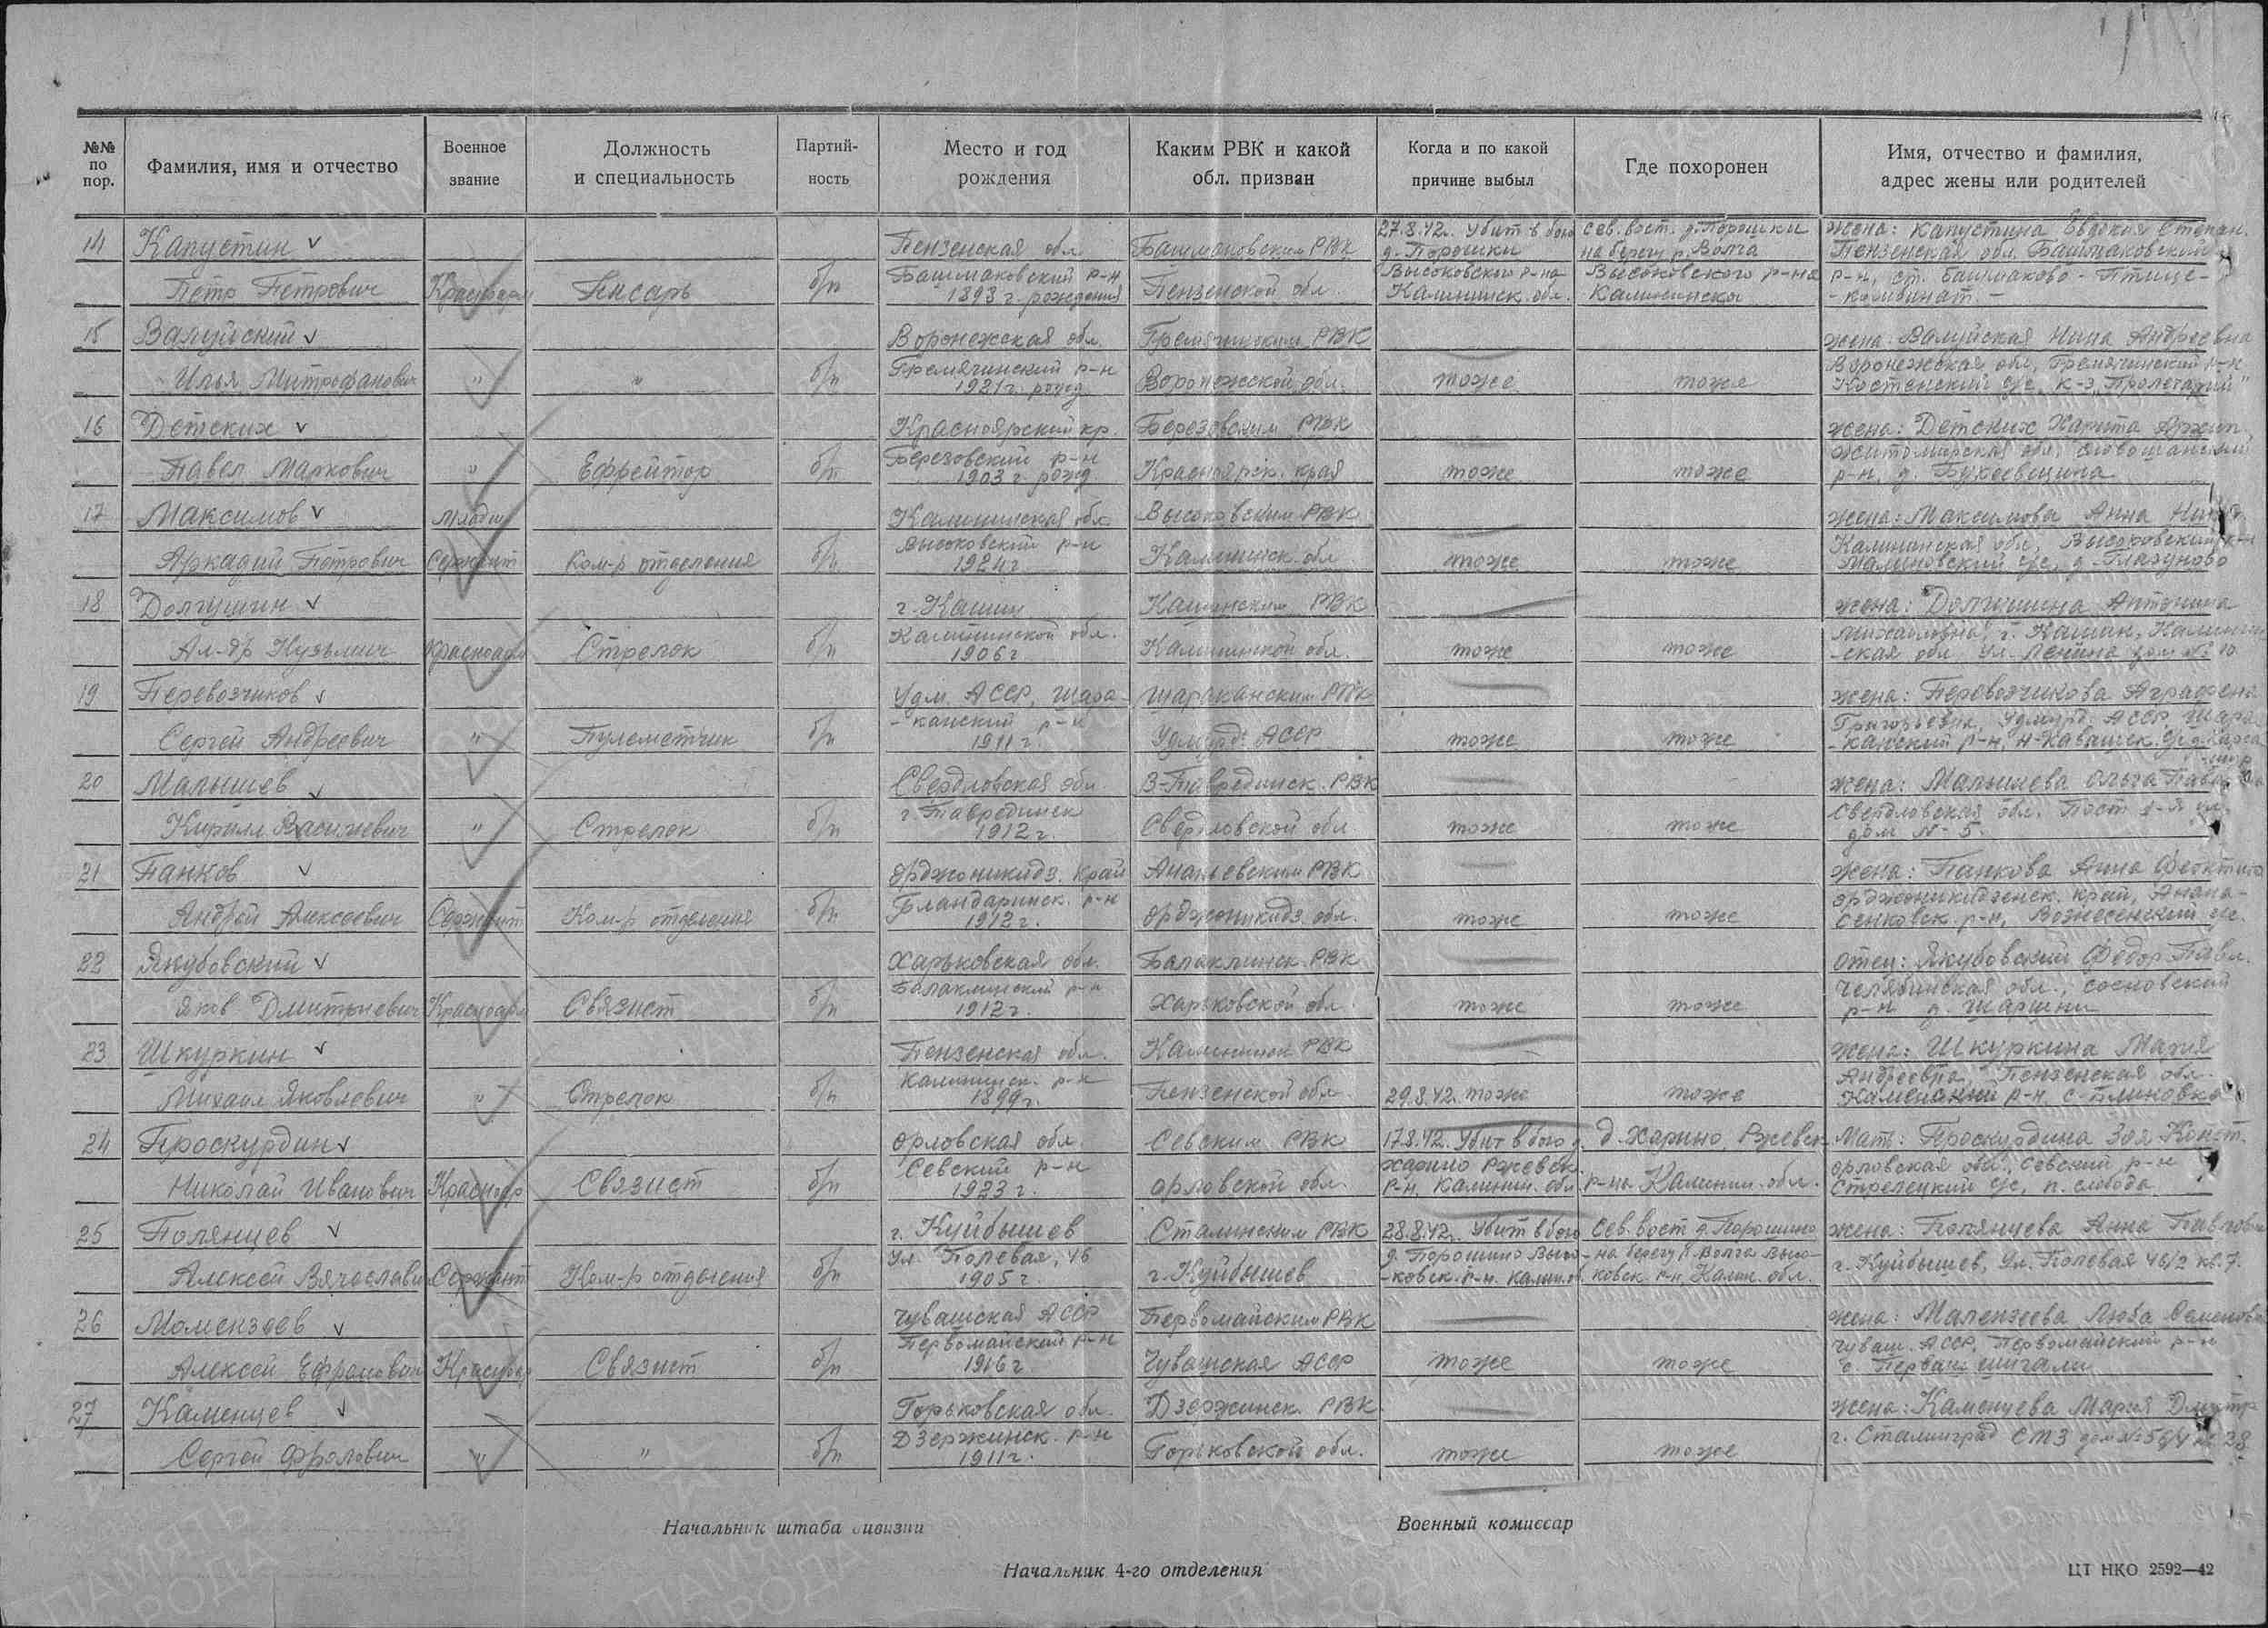 №№ по пор.
Фамилия, имя и отчество
Военное звание
Должность и специальность
Партийность
Место и год рождения
Каким РВК и какой обл. призван
Когда и по какой причине выбыл
Где похоронен
Имя, отчество и фамилия, адрес жены или родителей
14 Капустин Пензенская обл. Башмаковским РВК 27.8.42. Убит в бою сев. вост. д. Порошки жена: Капустина Евдокия Степан.
д. Порошки на берегу р. Волга Пензенская обл. Башмаковский
Петр Петрович Красноарм Писарь б/п Башмаковский р-н Пензенской обл. Высоковского р-на Высоковского р-на р-н, ст. Башмаково - Птице-
1898 г. рождения Калининск. обл. Калининской -комбинат. -
15 Валуйский Воронежская обл. Гремяченским РВК жена: Валуйская Нина Андреевна
Илья Митрофанович " " б/п Гремяченский р-н Воронежской обл. тоже тоже Воронежская обл. Гремяченский р-н
1921 г. рожд. Костенский с/с, к-з "Пролетарий"
16 Детских Красноярский кр. Березовским РВК жена: Детских Харита Архип.
Павел Маркович " Ефрейтор б/п Березовский р-н Красноярск. края тоже тоже Житомирская обл.
1903 г. рожд. р-н, д.
17 Максимов Младш. Калининская обл. Высоковским РВК жена: Максимова Анна
Аркадий Петрович Сержант Ком-р отделения б/п Высоковский р-н Калининск. обл. тоже тоже Калининская обл., Высоковский р-н
1924 г. Малиновский с/с, д. Глазуново
18 Долгушин г. Кашин Кашинским РВК жена: Долгушина Антонина
Ал-др Кузьмич Красноарм Стрелок б/п Калининской обл. Калининской обл. тоже тоже Михайловна, г. Кашин, Калинин
1906 г. -ская обл. ул. Ленина дом № 10.
19 Перевозчиков Удм. АССР, Шара- Шарканским РВК жена: Перевозчикова Аграфена
Сергей Андреевич " Пулеметчик б/п -канский р-н Удмурд. АССР тоже тоже Григорьевна, Удмурд. АССР, Шара
1911 г. -канский р-н,
20 Малышев Свердловская обл. В-Тавдинск. РВК жена: Малышева Ольга
Кирилл Васильевич " Стрелок б/п Свердловской обл. тоже тоже Свердловская обл.
1912 г. дом № 5.
21 Панков Орджоникидз. край РВК жена: Панкова Анна Феоктист
Андрей Алексеевич Сержант Ком-р отделения б/п р-н Орджоникидз. обл. тоже тоже Орджоникидзенск. край,
1912 г. р-н, Вознесенский с/с.
22 Якубовский Харьковская обл. Балаклинск. РВК отец: Якубовский Федор Павл.
Яков Дмитриевич Красноарм Связист б/п Балаклинский р-н Харьковской обл. тоже тоже Челябинская обл., Сосновский
1912 г. р-н д.
23 Шкуркин Пензенская обл. РВК жена: Шкуркина Мария
Михаил Яковлевич " Стрелок б/п р-н Пензенской обл. 29.8.42. тоже тоже Андреевна, Пензенская обл.
1899 г. Каменский р-н, с.
24 Проскурдин Орловская обл. Севским РВК 17.8.42. Убит в бою д. д. Харино, Ржевск. Мать: Проскурдина Зоя Конст.
Николай Иванович Красноар Связист б/п Севский р-н Орловской обл. Харино Ржевск. р-на Калинин. обл. Орловская обл., Севский р-н
1923 г. р-н, Калинин. обл. Стрелецкий с/с, п. слобода
25 Полянцев г. Куйбышев Сталинским РВК 28.8.42. Убит в бою Сев. вост. д. Порошино жена: Полянцева Анна Павлов
Алексей Вячеслави Сержант Ком-р отделения б/п ул. Полевая, 46 г. Куйбышев д. Порошино Высо- на берегу р. Волга Высо- г. Куйбышев, ул. Полевая 46/2 кв. 7.
1905 г. -ковск. р-н. Калин. об. ковск. р-н, Калин. обл.
26 Момензеев Чувашская АССР Первомайским РВК жена: Малензеева Люба Семенов
Алексей Красноар Связист б/п Первомайский р-н Чувашская АССР тоже тоже Чуваш. АССР, Первомайский р-н
1916 г. с. Шигали
27 Каменцев Горьковская обл. Дзержинск. РВК жена: Каменцева Мария Дмитр
Сергей Фролович " " б/п Дзержинск. р-н Горьковской обл. тоже тоже г. Сталинград СТЗ дом № кв 28
1911 г.
Начальник штаба дивизии
Военный комиссар
Начальник 4-го отделения
ЦТ НКО 2592—42
ПАМЯТЬ НАРОДА